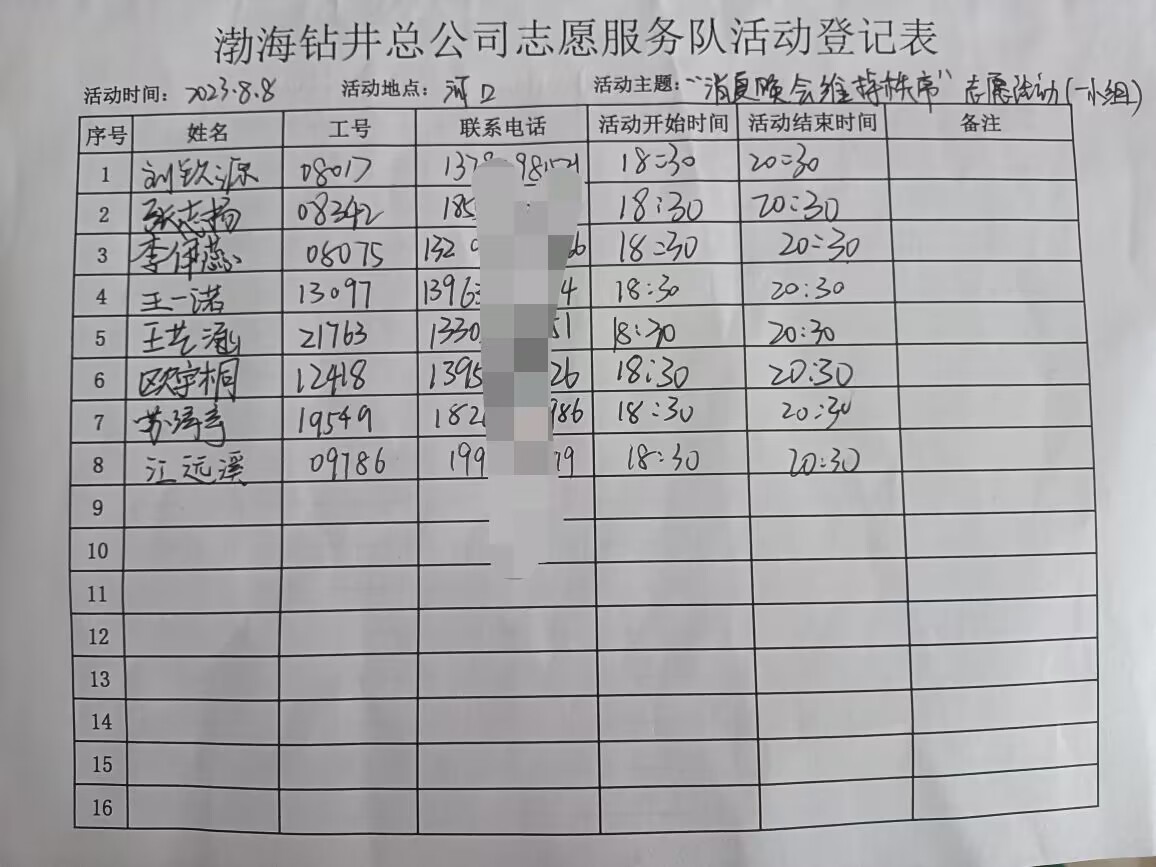 渤海钻井总公司志愿服务队活动登记表
活动时间: 2023.8.8 活动地点: 河口 活动主题: "消夏晚会维持秩序" 志愿活动(一小组)
序号 姓名 工号 联系电话 活动开始时间 活动结束时间 备注
1 刘钦源 08017 137 18=30 20=30
2 张志扬 08342 185 18:30 20:30
3 李伊蕊 08075 132 66 18=30 20=30
4 王一诺 13097 1396 4 18:30 20:30
5 王艺涵 21763 1330 51 18:30 20:30
6 欧宇桐 12418 1395 26 18:30 20:30
7 苏 19549 182 986 18:30 20:30
8 江远溪 09786 199 79 18:30 20:30
9
10
11
12
13
14
15
16